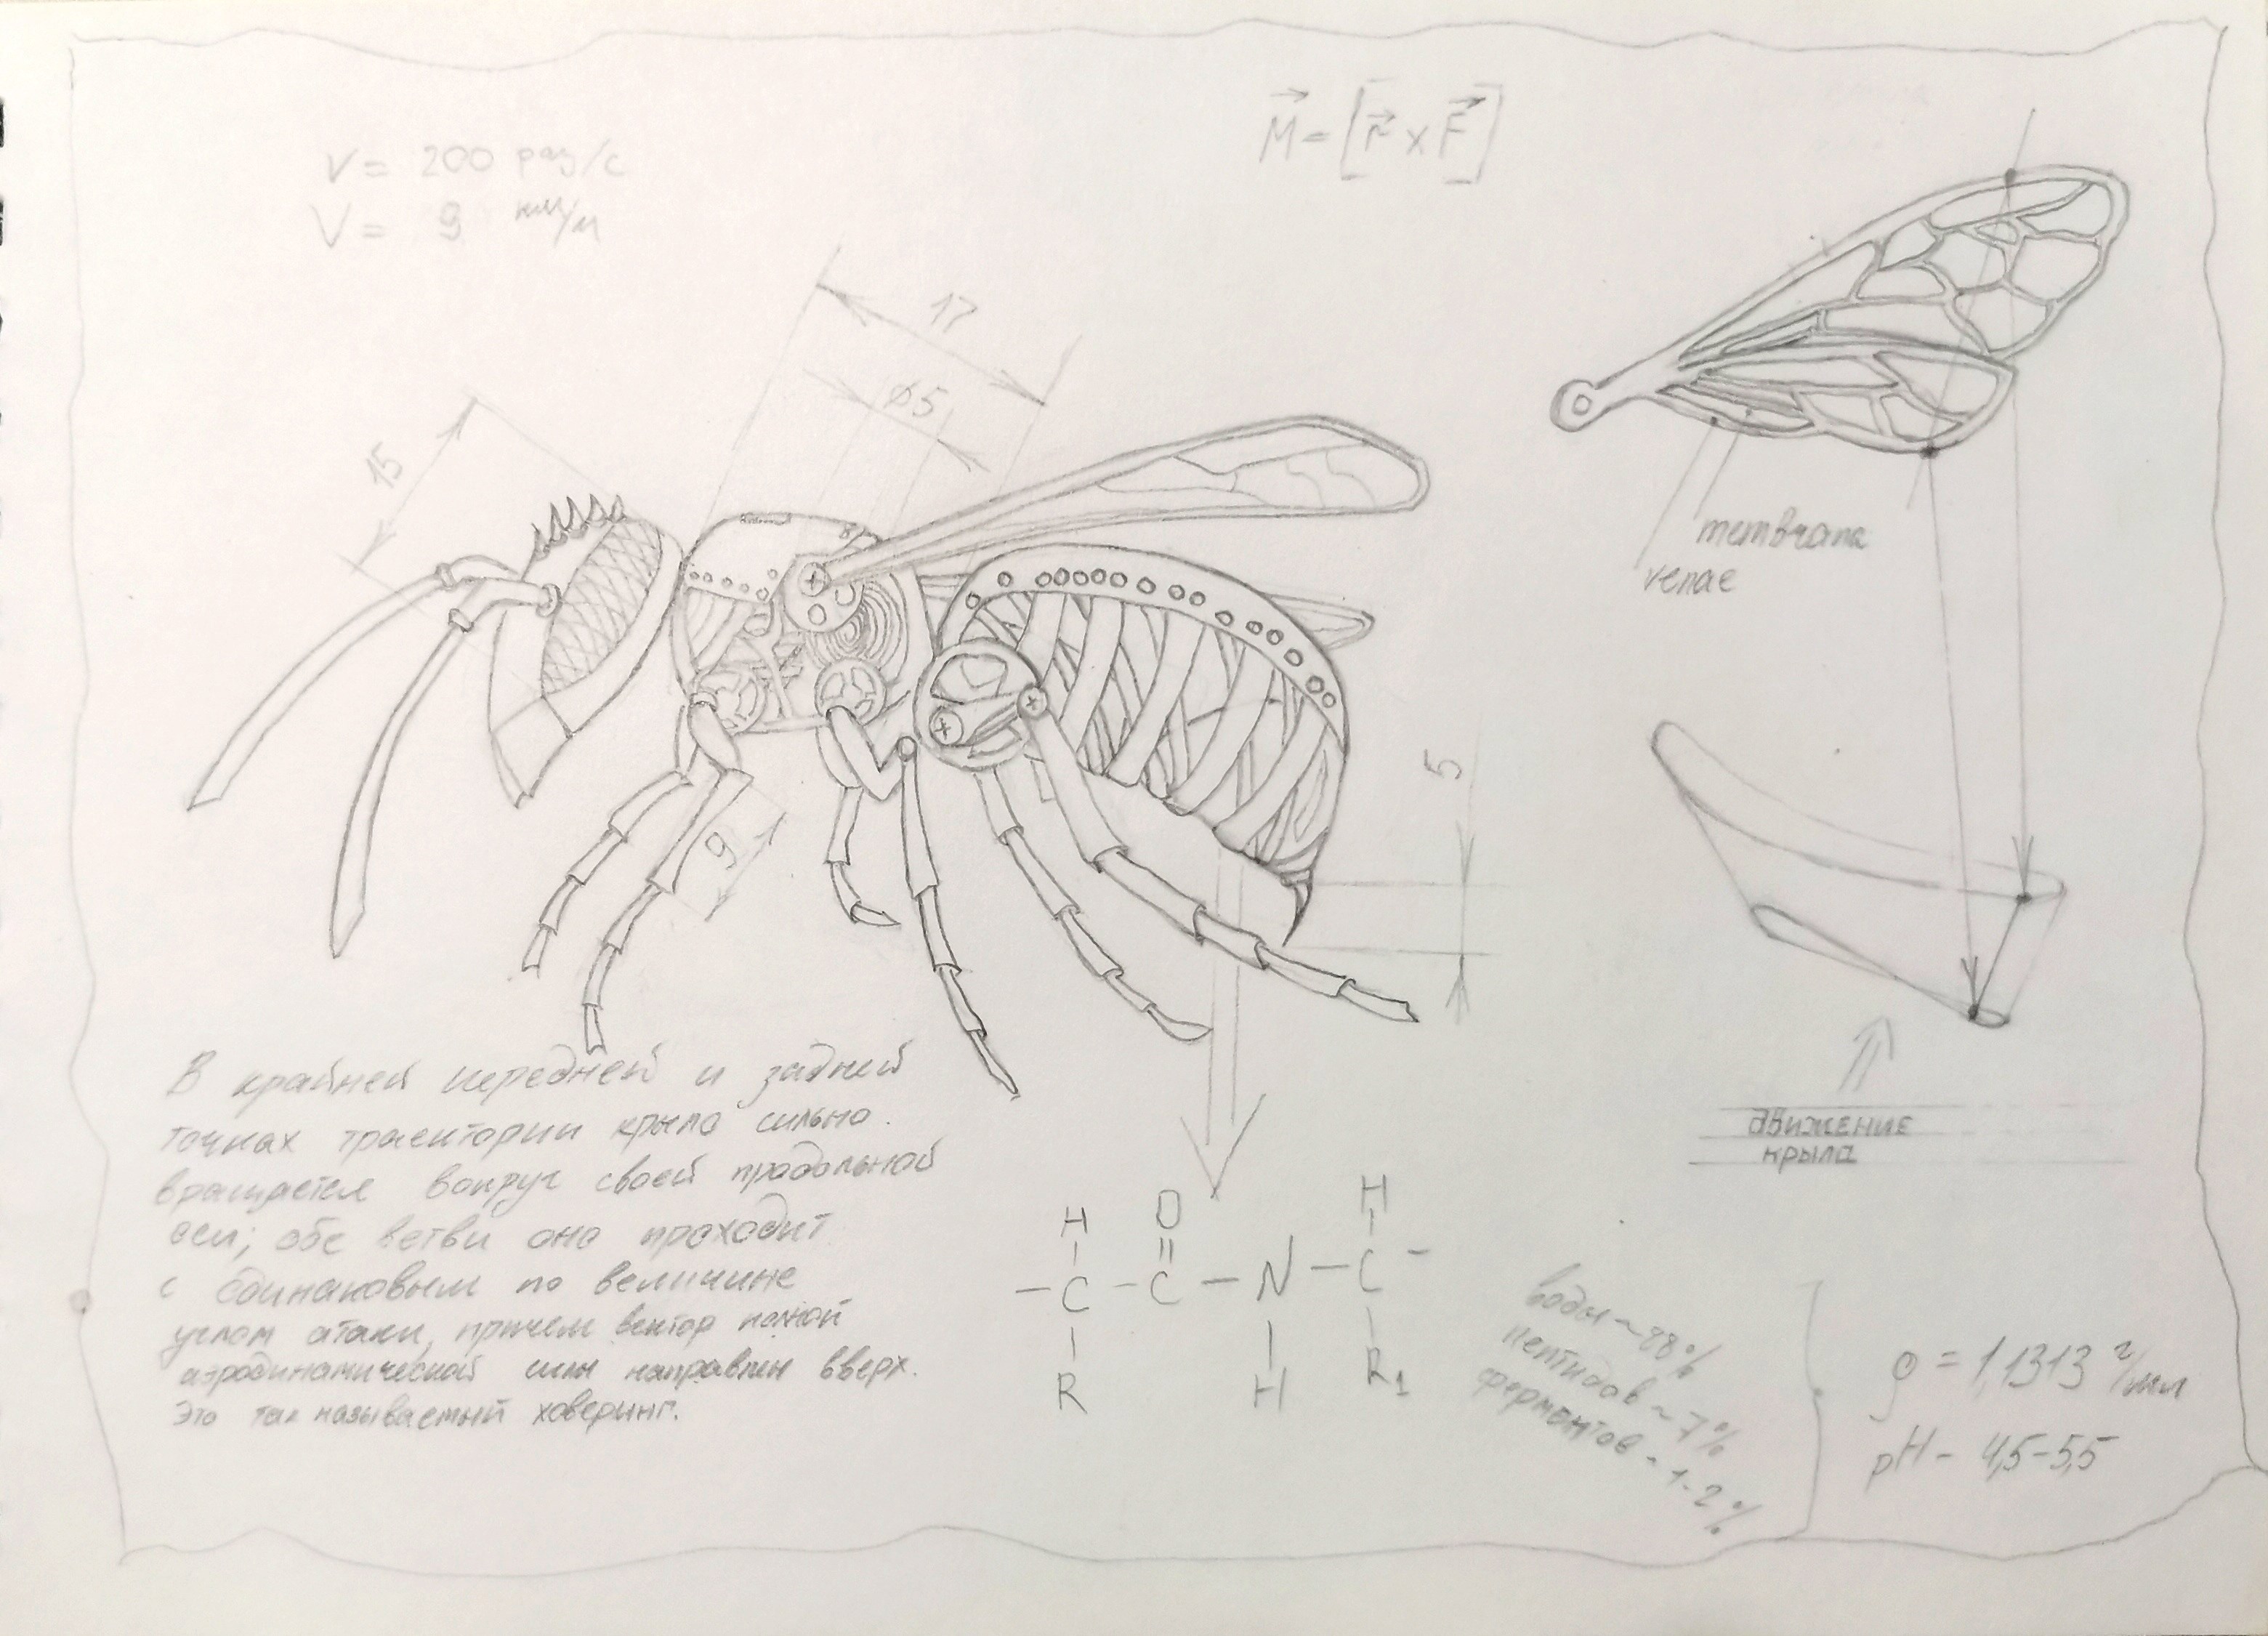 ν = 200 раз/с
V = 9 км/ч
M = [r × F]
17
⌀5
15
membrana
venae
5
9
движение
крыла
В крайней передней и задней
точках траектории крыло сильно
вращается вокруг своей продольной
оси; обе ветви оно проходит
с одинаковым по величине
углом атаки, причем вектор полной
аэродинамической силы направлен вверх.
Это так называемый ховеринг.
H O H
– C – C – N – C –
R H R1
воды ~ 88%
пептидов ~ 7%
ферментов ~ 1-2%
ρ = 1,1313 г/мл
pH - 4,5-5,5